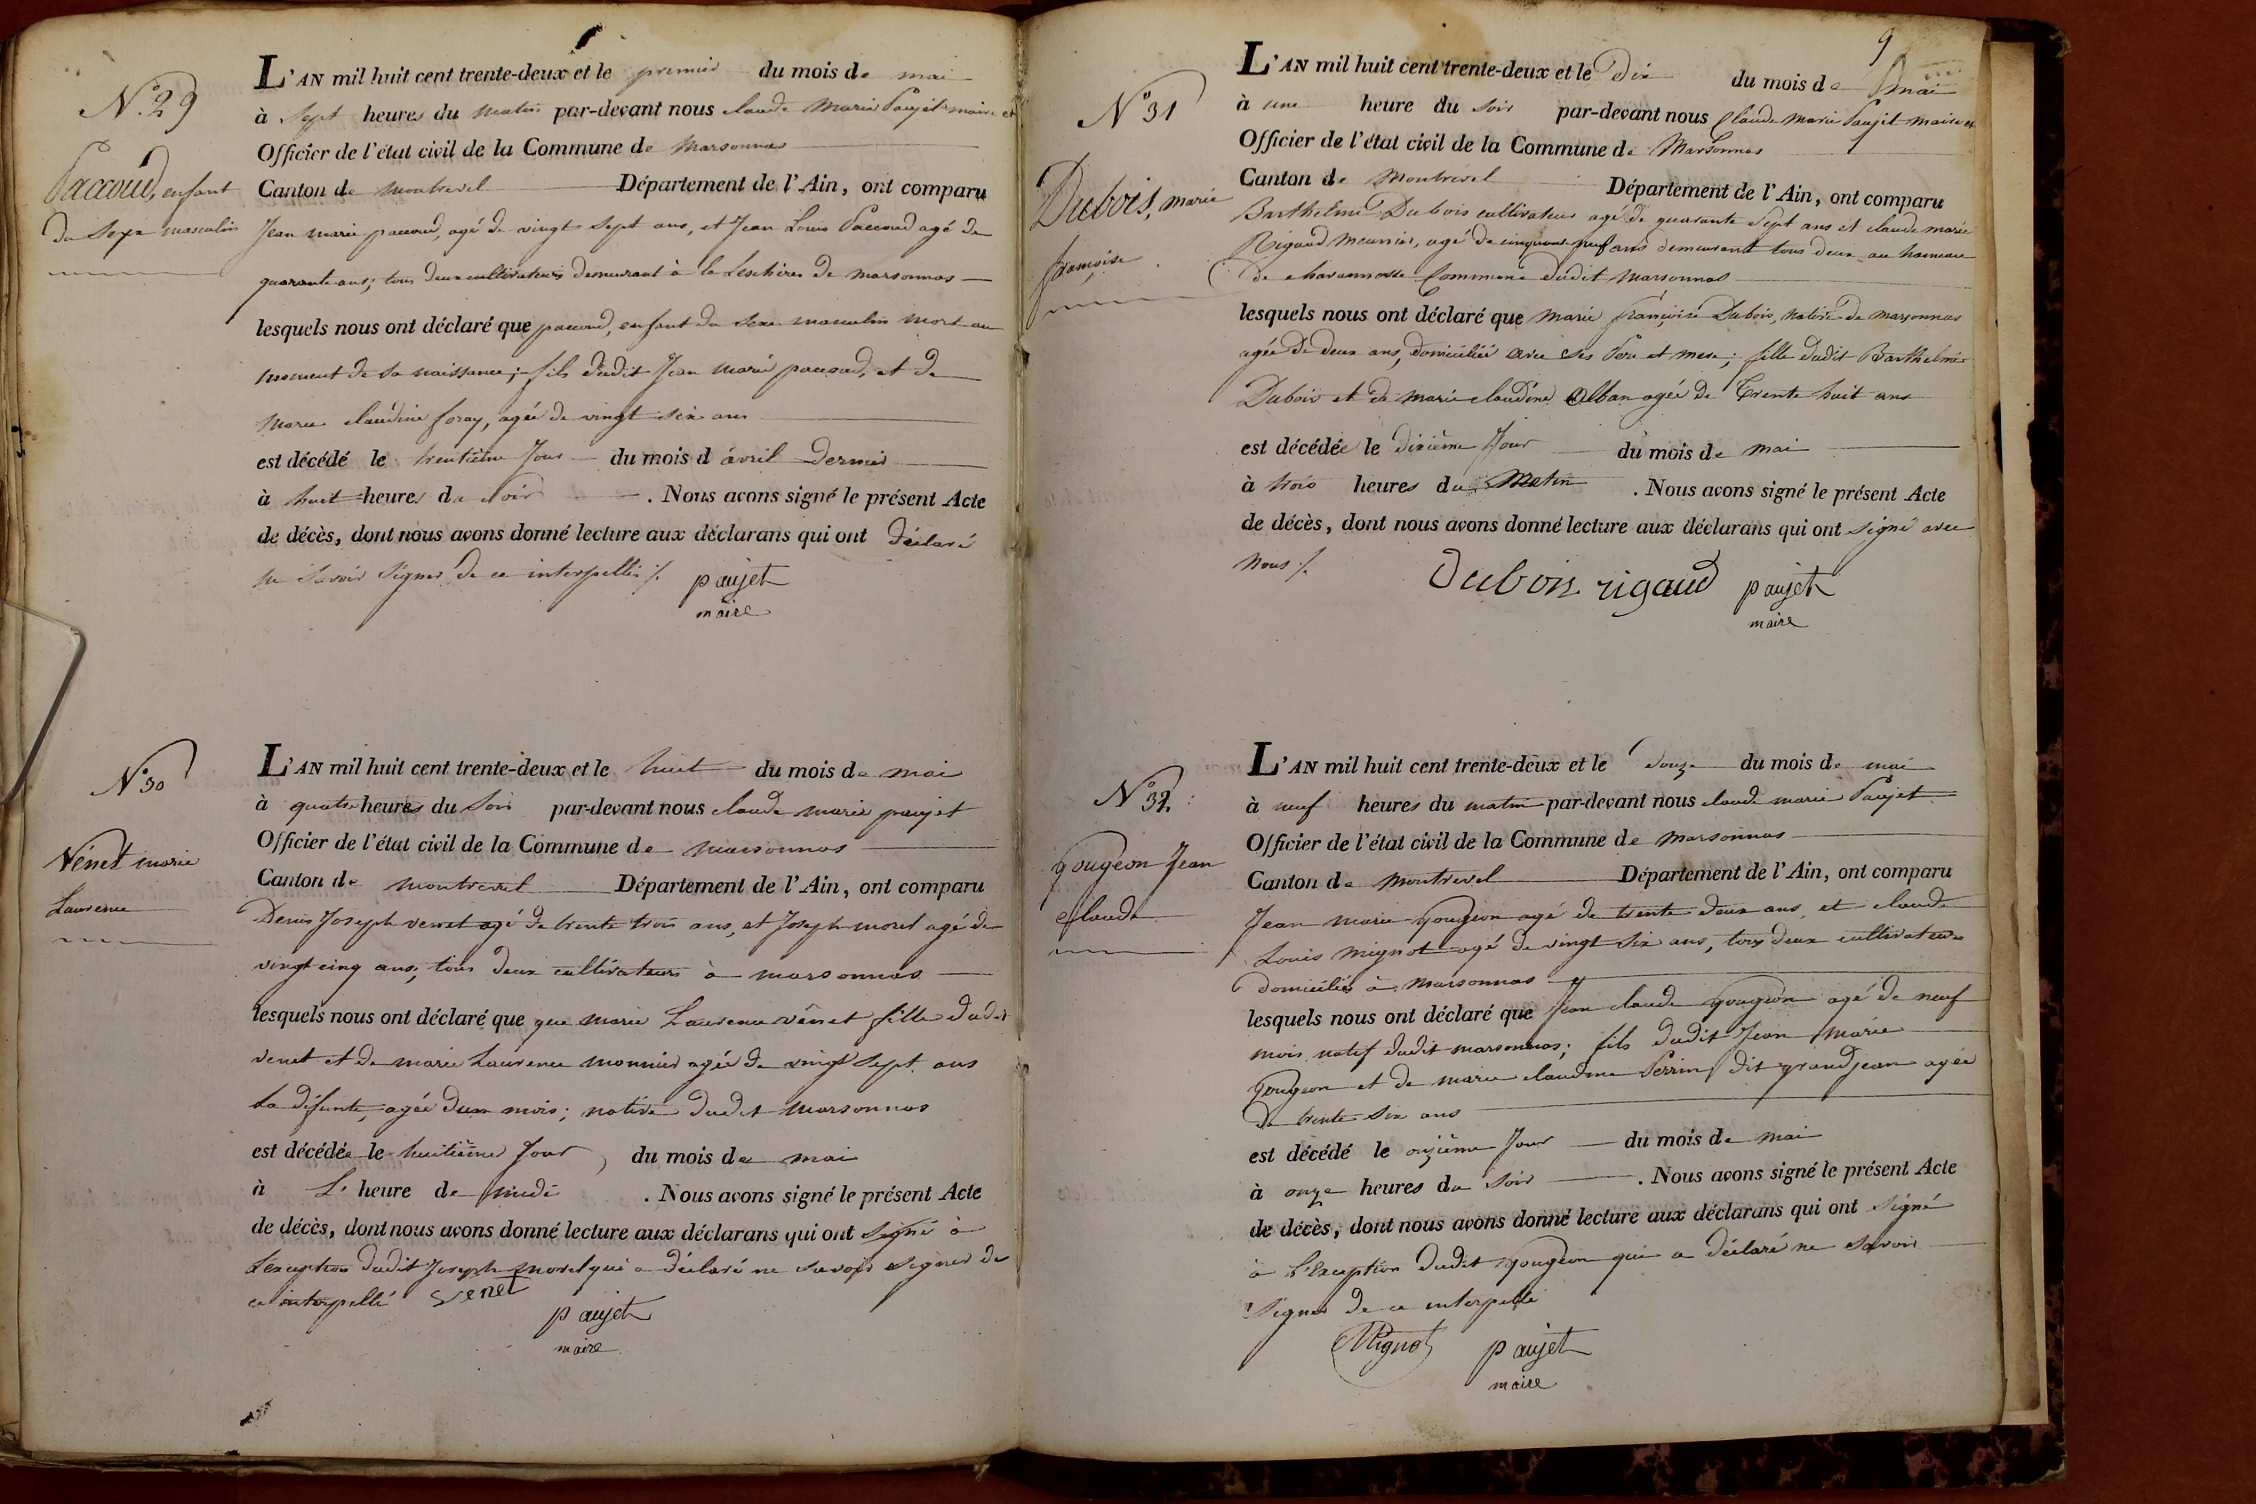 N° 29
Paccoud, enfant
du Sexe masculin
L'AN mil huit cent trente-deux et le premier du mois de mai
à Sept heures du matin par-devant nous claude Marie Paujet maire et
Officier de l'état civil de la Commune de Marsonnas
Canton de montrevel Département de l'Ain, ont comparu
Jean marie paccoud, agé de vingt Sept ans, et Jean Louis Paccoud agé de
quarante ans; tous deux cultivateurs demeurant à la Leschères de marsonnas
lesquels nous ont déclaré que paccoud, enfant du Sexe masculin mort au
moment de Sa naissance; fils dudit Jean marie paccoud, et de
marie claudine foray, agée de vingt six ans
est décédé le trentième Jour du mois d avril dernier
à huit heures du soir . Nous avons signé le présent Acte
de décès, dont nous avons donné lecture aux déclarans qui ont déclaré
ne Savoir Signer de ce interpellés ./.
paujet
maire
N° 30
Vénet marie
Laurence
L'AN mil huit cent trente-deux et le huit du mois de mai
à quatre heures du Soir par-devant nous claude marie paujet
Officier de l'état civil de la Commune de marsonnas
Canton de montrevel Département de l'Ain, ont comparu
Denis Joseph venet agé de trente trois ans, et Joseph morel agé de
vingt cinq ans; tous deux cultivateurs à marsonnas
lesquels nous ont déclaré que que marie Laurence vénet fille dudit
venet et de marie Laurence monnier agée de vingt Sept ans
la défunte, agée d'un mois; native dudit Marsonnas
est décédée le huitième Jour du mois de mai
à L' heure de midi . Nous avons signé le présent Acte
de décès, dont nous avons donné lecture aux déclarans qui ont Signé à
L'exception dudit Joseph morel qui a déclaré ne savoir signer de
ce interpellé
venet
paujet
maire
9
N° 31
Dubois, marie
françoise
L'AN mil huit cent trente-deux et le Dix du mois de mai
à une heure du Soir par-devant nous Claude Marie Paujet maire et
Officier de l'état civil de la Commune de Marsonnas
Canton de Montrevel Département de l'Ain, ont comparu
Barthelmi Dubois cultivateur agé de quarante Sept ans et claude marie
Rigaud Meunier, agé de cinquante neuf ans demeurant tous deux au hameau
de chavannosse Commune dudit Marsonnas
lesquels nous ont déclaré que Marie françoise Dubois, native de marsonnas
agée de deux ans, domiciliée avec ses Père et mere; fille dudit Barthelmi
Dubois et de marie claudine Alban agée de Trente huit ans
est décédée le dixième Jour du mois de mai
à trois heures du Matin . Nous avons signé le présent Acte
de décès, dont nous avons donné lecture aux déclarans qui ont signé avec
Nous ./.
Dubois rigaud paujet
maire
N° 32.
Gougeon Jean
Claude
L'AN mil huit cent trente-deux et le Douze du mois de mai
à neuf heures du matin par-devant nous claude marie Paujet
Officier de l'état civil de la Commune de marsonnas
Canton de montrevel Département de l'Ain, ont comparu
Jean marie Gougeon agé de trente deux ans, et claude
Louis Mignot agé de vingt six ans, tous deux cultivateurs
domiciliés à marsonnas
lesquels nous ont déclaré que Jean claude Gougeon agé de neuf
mois, natif dudit marsonnas; fils dudit Jean Marie
Gougeon et de marie claudine Perrin dit grandjean agée
de trente six ans
est décédé le onzième Jour du mois de mai
à onze heures du Soir . Nous avons signé le présent Acte
de décès, dont nous avons donné lecture aux déclarans qui ont signé
à L'exception dudit Gougeon qui a déclaré ne savoir
Signer de ce interpellé
Mignot paujet
maire